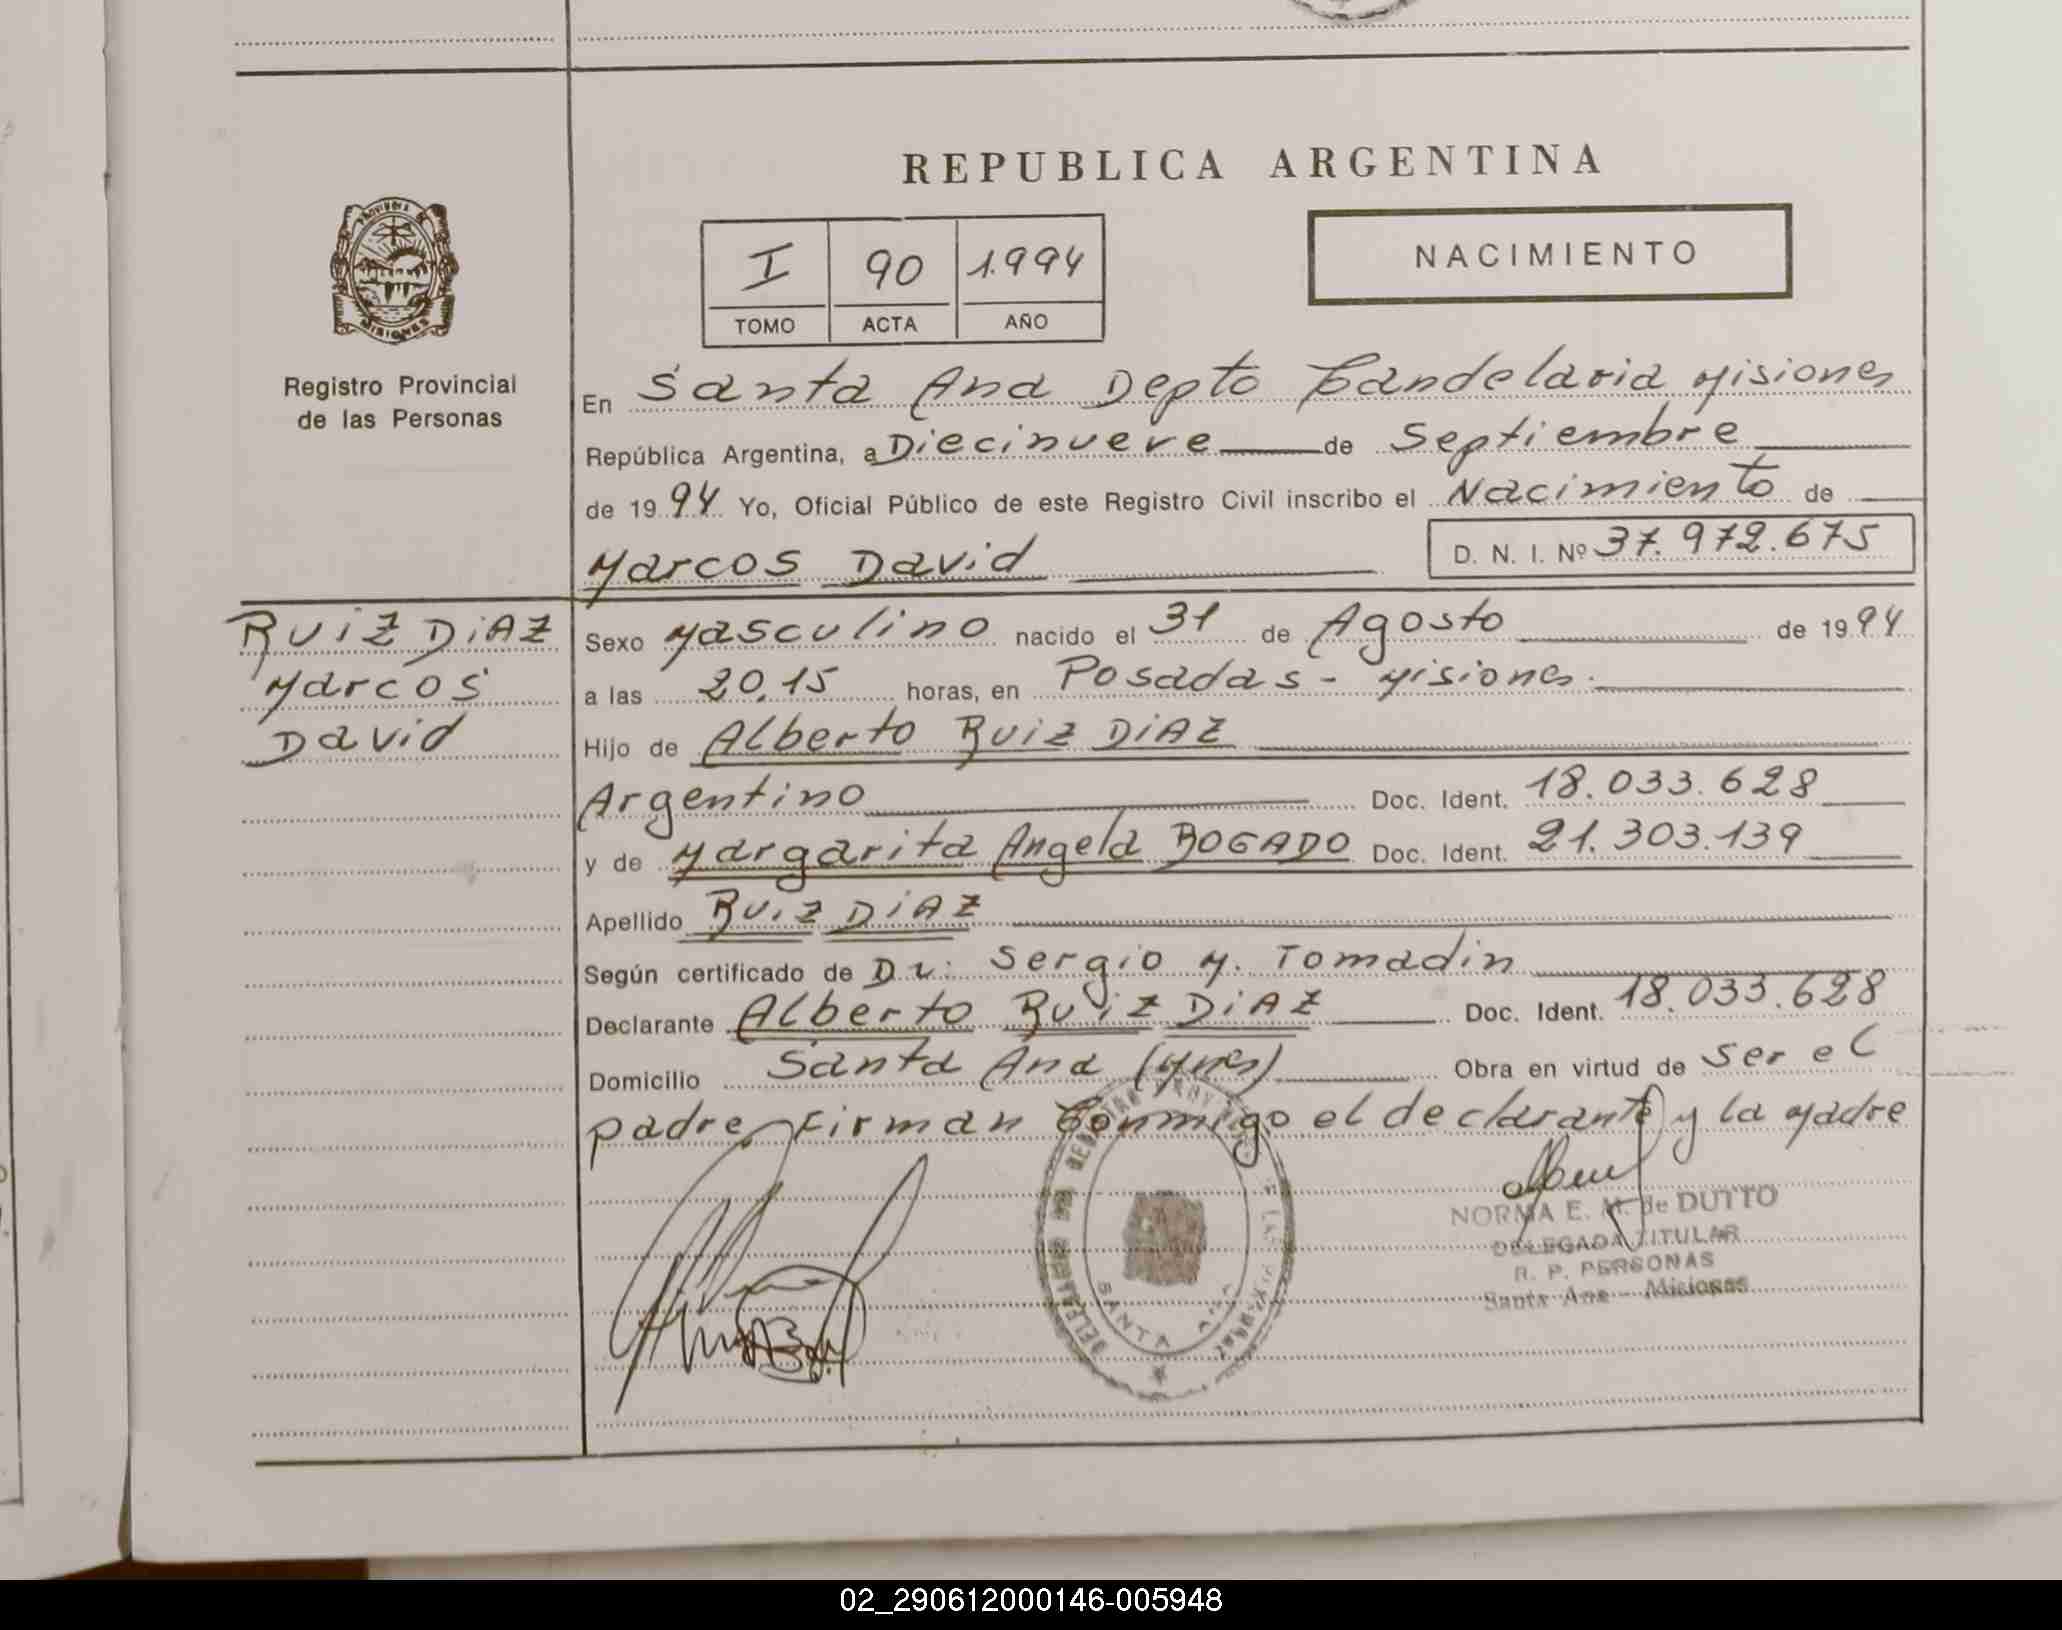 REPUBLICA ARGENTINA
PROVINCIA DE
MISIONES
Registro Provincial
de las Personas
I 90 1.994
TOMO ACTA AÑO
NACIMIENTO
En Santa Ana Depto Candelaria Misiones
República Argentina, a Diecinueve de Septiembre
de 1994 Yo, Oficial Público de este Registro Civil inscribo el Nacimiento de
Marcos David D. N. I. Nº 37.972.675
RUIZ DIAZ
Marcos
David
Sexo Masculino nacido el 31 de Agosto de 1994
a las 20.15 horas, en Posadas - Misiones.
Hijo de Alberto RUIZ DIAZ
Argentino Doc. Ident. 18.033.628
y de Margarita Angela BOGADO Doc. Ident. 21.303.139
Apellido RUIZ DIAZ
Según certificado de Dr: Sergio M. Tomadin
Declarante Alberto RUIZ DIAZ Doc. Ident. 18.033.628
Domicilio Santa Ana (Mnes) Obra en virtud de ser el
padre, Firman Conmigo el declarante y la Madre
SANTA ANA
NORMA E. M. de DUTTO
DELEGADA TITULAR
R. P. PERSONAS
Santa Ana - Misiones
02_290612000146-005948